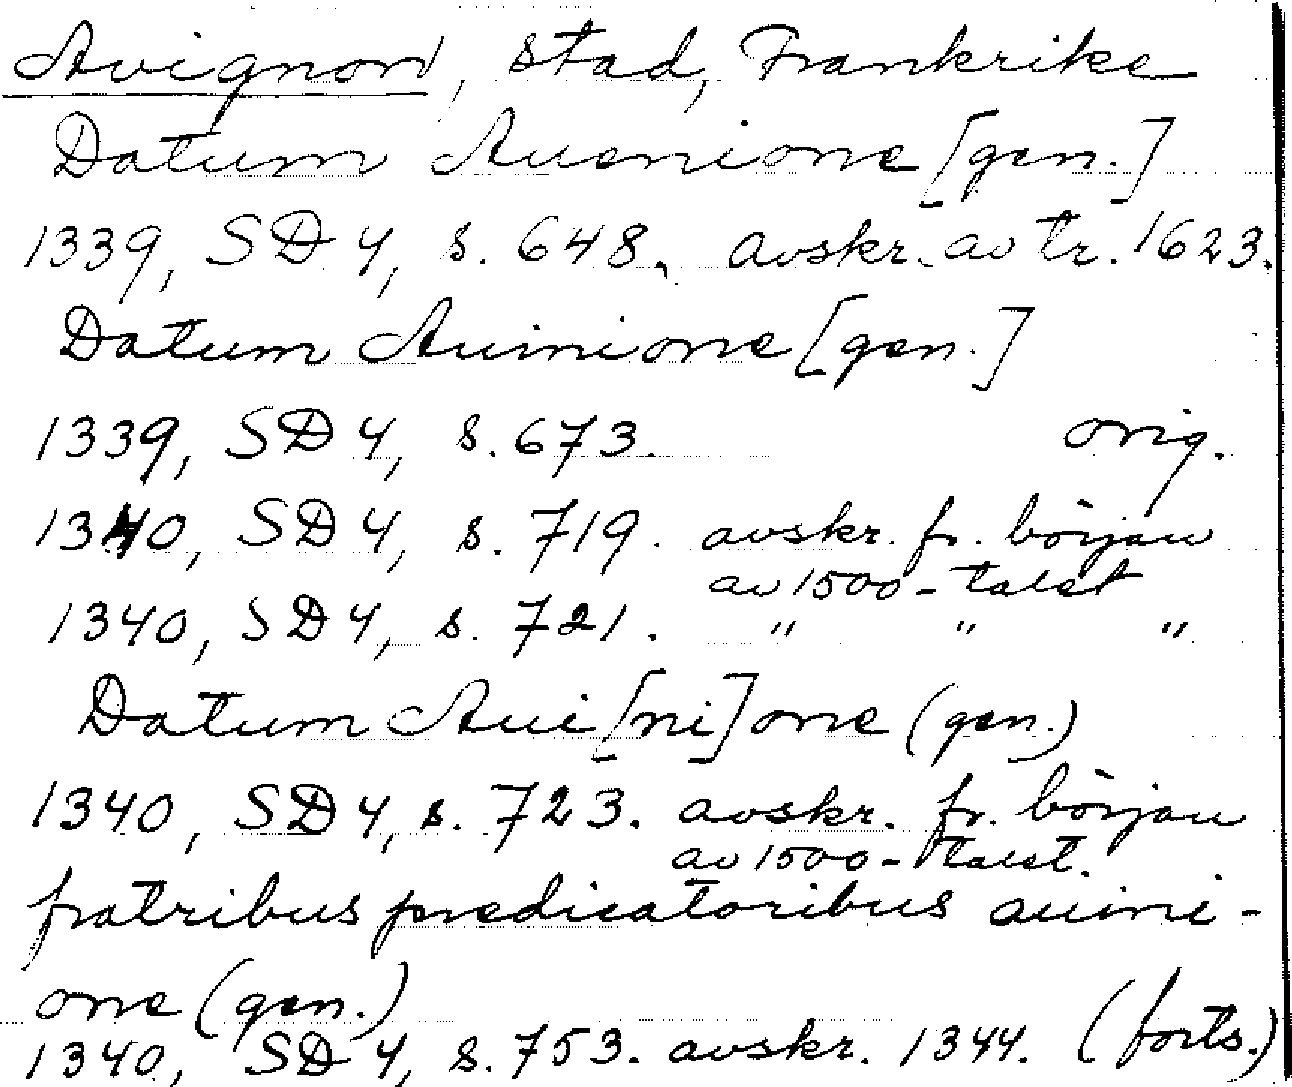 Avignon, stad, Frankrike
Datum Auenione [gen.]
1339, SD 4, s. 648. avskr. av tr. 1623.
Datum Auinione [gen.]
1339, SD 4, s. 673. orig.
1340, SD 4, s. 719. avskr. fr. början
av 1500-talet
1340, SD 4, s. 721. " " "
Datum Aui[ni]one (gen.)
1340, SD 4, s. 723. avskr. fr. början
av 1500-talet.
fratribus predicatoribus auini-
one (gen.)
1340, SD 4, s. 753. avskr. 1344. (forts.)